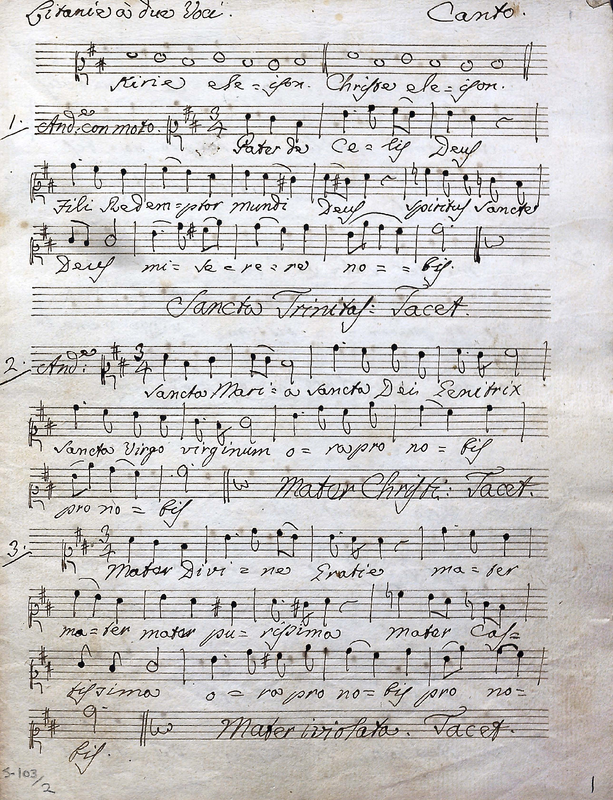 Litanie à due Voci. Canto.
Kirie ele=ison. Christe ele=ison.
1. And.e con moto. 3/4
Pater de Ce=lis Deus
Fili Redem=ptor mundi Deus spiritus sancte
Deus mi=se=re=re no==bis.
Sancta Trinitas: Tacet.
2. And.e 3/4
Sancta Mari=a sancta Dei Genitrix
Sancta Virgo virginum o=ra pro no=bis
pro no=bis Mater Christi: Tacet.
3. 3/4
Mater Divi=ne Gratie ma=ter
ma=ter mater pu=rissima mater Cas=
tissima o=ra pro no=bis pro no=
bis. Mater iviolata. Tacet.
S-103/2
1